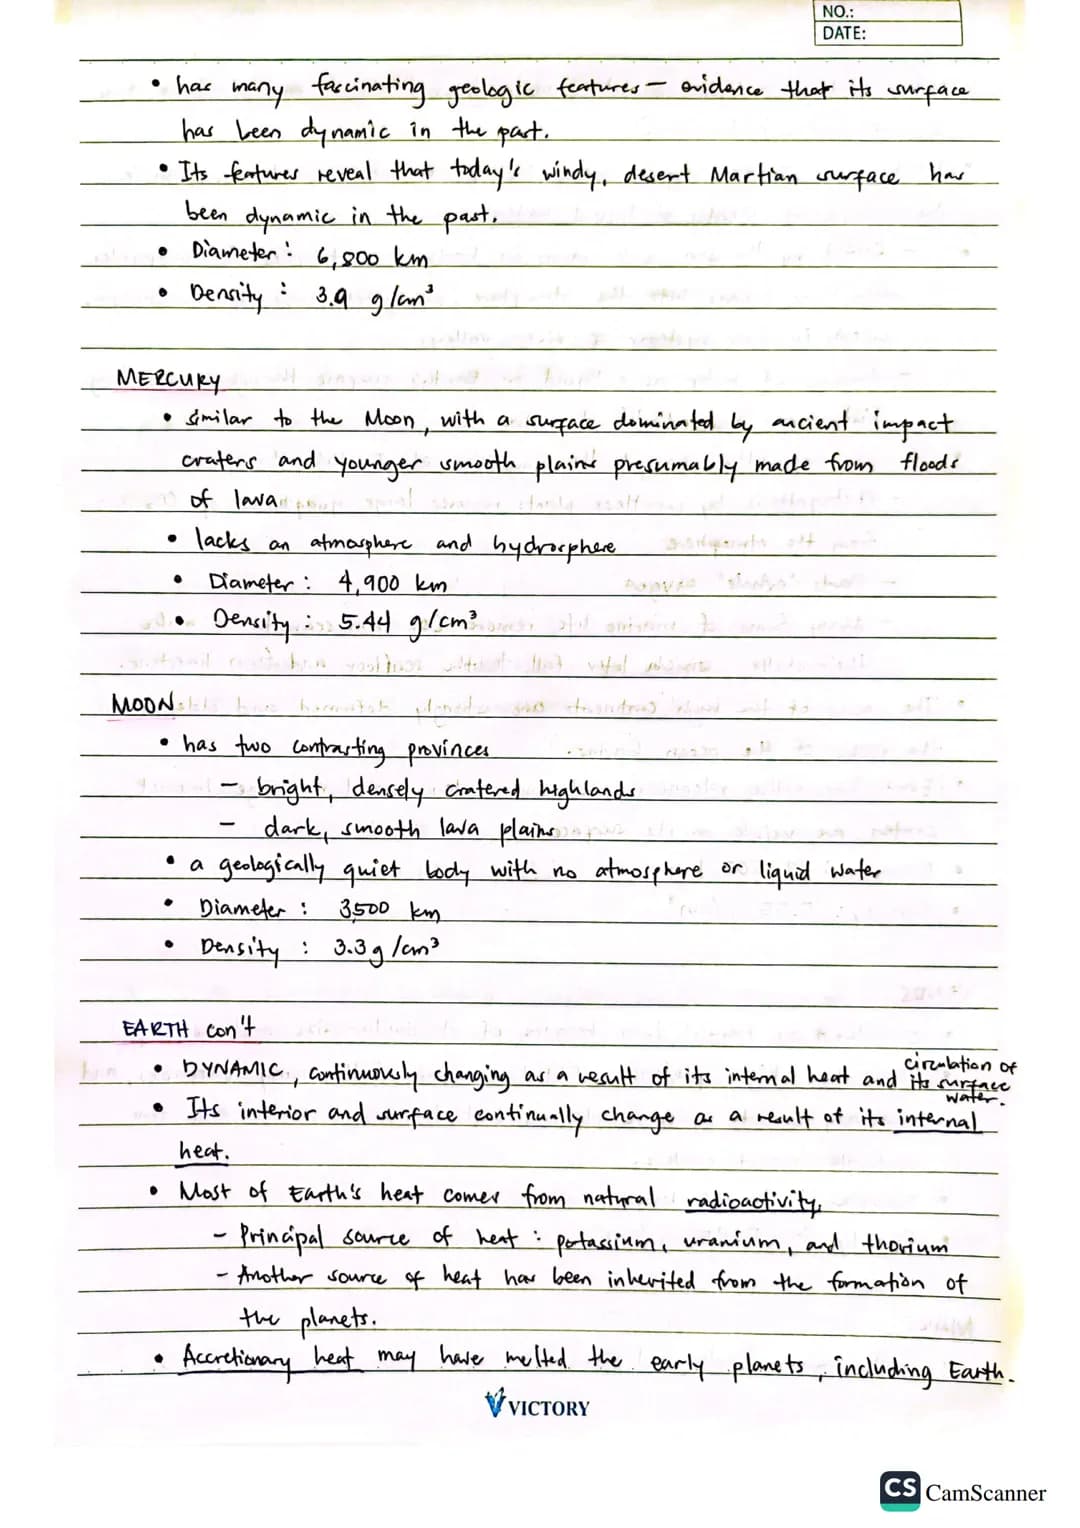 NO.:
DATE:
• has many fascinating geologic features — evidence that its surface
has been dynamic in the past.
• Its features reveal that today's windy, desert Martian surface has
been dynamic in the past.
• Diameter : 6,800 km
• Density : 3.9 g/cm³
MERCURY
• similar to the Moon, with a surface dominated by ancient impact
craters and younger smooth plains presumably made from floods
of lava
• lacks an atmosphere and hydrosphere
• Diameter : 4,900 km
• Density : 5.44 g/cm³
MOON
• has two contrasting provinces
— bright, densely cratered highlands
— dark, smooth lava plains
• a geologically quiet body with no atmosphere or liquid water
• Diameter : 3,500 km
• Density : 3.3 g/cm³
EARTH con't
• DYNAMIC, continuously changing as a result of its internal heat and circulation of its surface water.
• Its interior and surface continually change as a result of its internal
heat.
• Most of Earth's heat comes from natural radioactivity,
- Principal source of heat : potassium, uranium, and thorium
- Another source of heat has been inherited from the formation of
the planets.
• Accretionary heat may have melted the early planets, including Earth.
VICTORY
CS CamScanner